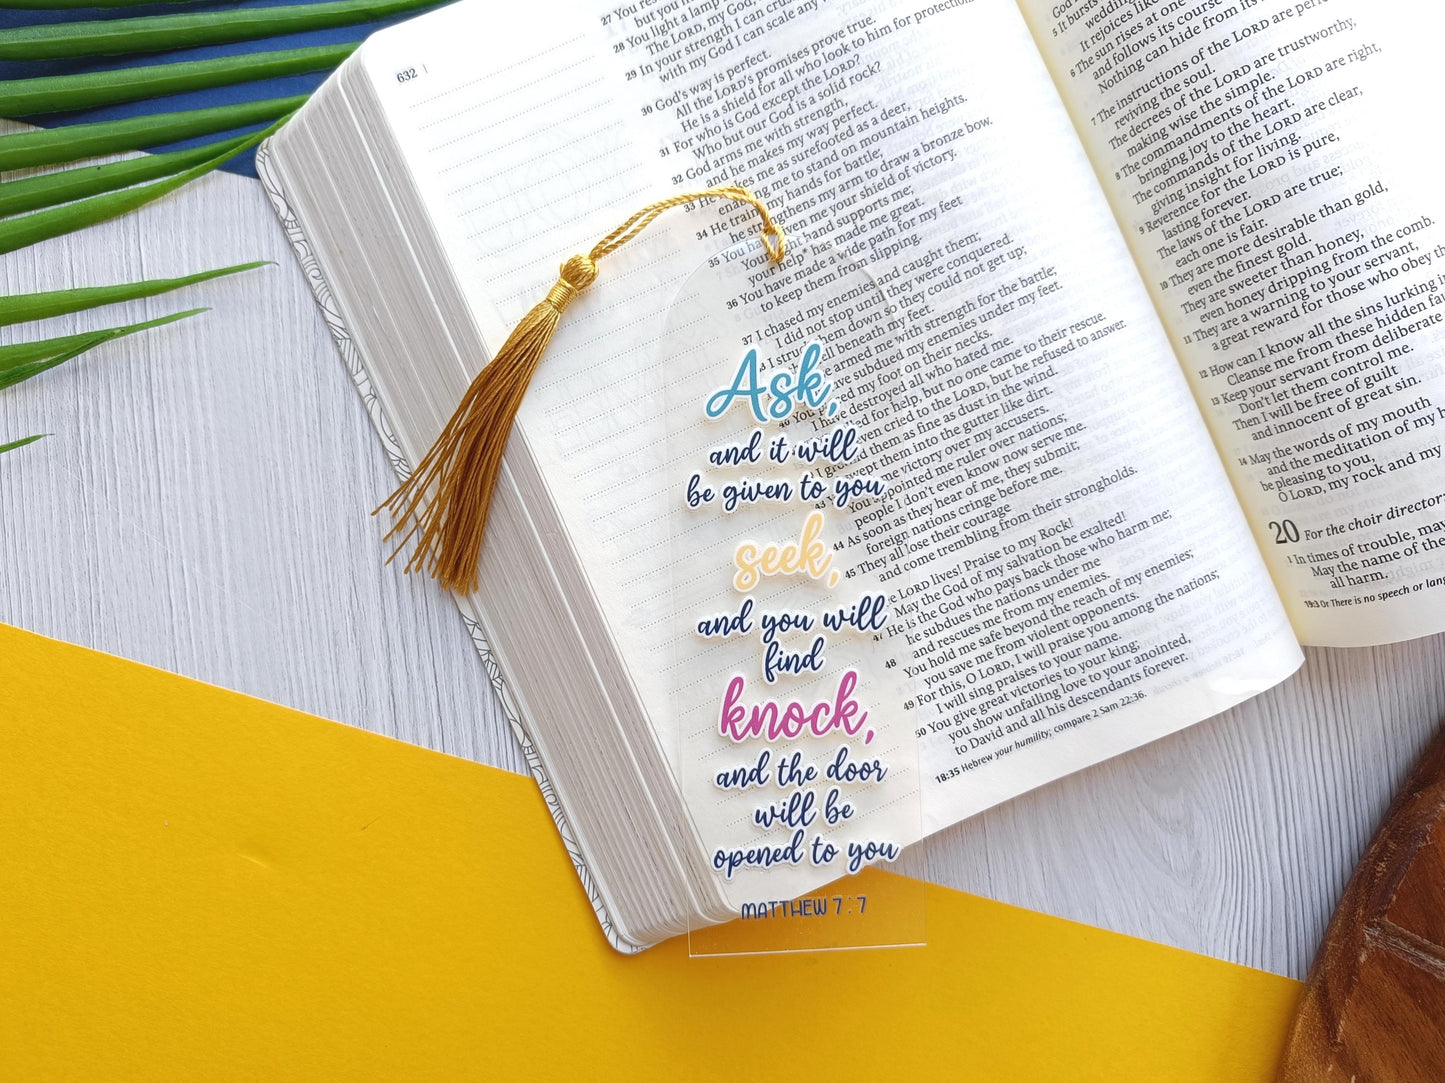 632
27 You res
but you hu
28 You light a lamp
The LORD, my God,
29 In your strength I can crus
with my God I can scale any
30 God's way is perfect.
All the LORD's promises prove true.
He is a shield for all who look to him for protection
31 For who is God except the LORD?
Who but our God is a solid rock?
32 God arms me with strength,
and he makes my way perfect.
33 He makes me as surefooted as a deer,
enabling me to stand on mountain heights.
34 He trains my hands for battle;
he strengthens my arm to draw a bronze bow.
35 You have given me your shield of victory.
Your right hand supports me;
your help* has made me great.
36 You have made a wide path for my feet
to keep them from slipping.
37 I chased my enemies and caught them;
I did not stop until they were conquered.
I struck them down so they could not get up;
fell beneath my feet.
armed me with strength for the battle;
have subdued my enemies under my feet.
40 You placed my foot on their necks.
I have destroyed all who hated me.
for help, but no one came to their rescue.
even cried to the LORD, but he refused to answer.
I ground them as fine as dust in the wind.
swept them into the gutter like dirt.
43 me victory over my accusers.
You appointed me ruler over nations;
people I don't even know now serve me.
44 As soon as they hear of me, they submit;
foreign nations cringe before me.
45 They all lose their courage
and come trembling from their strongholds.
LORD lives! Praise to my Rock!
May the God of my salvation be exalted!
47 He is the God who pays back those who harm me;
he subdues the nations under me
48 and rescues me from my enemies.
You hold me safe beyond the reach of my enemies;
you save me from violent opponents.
49 For this, O LORD, I will praise you among the nations;
I will sing praises to your name.
50 You give great victories to your king;
you show unfailing love to your anointed,
to David and all his descendants forever.
18:35 Hebrew your humility; compare 2 Sam 22:36.
Ask,
and it will
be given to you
seek,
and you will
find
knock,
and the door
will be
opened to you
MATTHEW 7:7
God
5 It bursts
wedding
It rejoices like
6 The sun rises at one
and follows its course
Nothing can hide from its
7 The instructions of the LORD are perfe
reviving the soul.
The decrees of the LORD are trustworthy,
making wise the simple.
8 The commandments of the LORD are right,
bringing joy to the heart.
The commands of the LORD are clear,
giving insight for living.
9 Reverence for the LORD is pure,
lasting forever.
The laws of the LORD are true;
each one is fair.
10 They are more desirable than gold,
even the finest gold.
They are sweeter than honey,
even honey dripping from the comb.
11 They are a warning to your servant,
a great reward for those who obey the
12 How can I know all the sins lurking i
Cleanse me from these hidden fa
13 Keep your servant from deliberate
Don't let them control me.
Then I will be free of guilt
and innocent of great sin.
14 May the words of my mouth
and the meditation of my h
be pleasing to you,
O LORD, my rock and my
20 For the choir director
1 In times of trouble, may
May the name of the
all harm.
19:3 Or There is no speech or lan